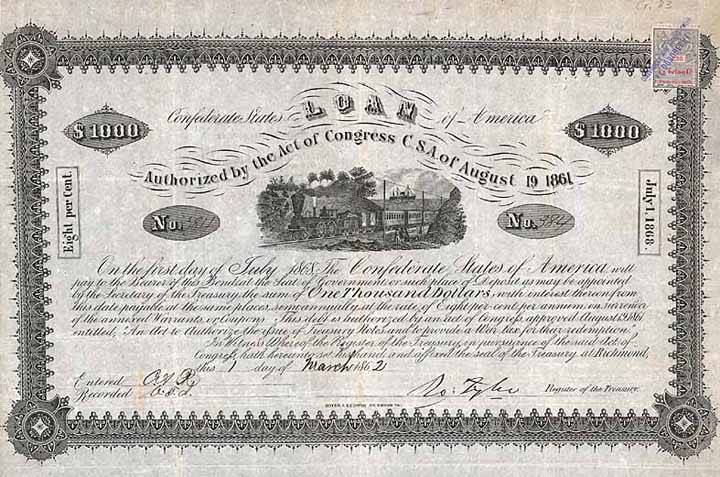 Cr. 83
Confederate States LOAN of America
$1000 $1000
Authorized by the Act of Congress C.S.A. of August 19 1861
Eight per Cent
July 1, 1868
No. 384 No. 384
On the first day of July 1868, The Confederate States of America, will
pay to the Bearer of this Bond, at the Seat of Government, or such place of Deposit as may be appointed
by the Secretary of the Treasury, the sum of One Thousand Dollars, with interest thereon from
this date payable at the same places, semi-annually, at the rate of Eight per Cent per annum, on surrender
of the annexed Warrants, or Coupons. This debt is authorized by an Act of Congress, approved August 19, 1861
entitled, "An Act to Authorize the issue of Treasury Notes, and to provide a War tax for their redemption."
In Witness Whereof the Register of the Treasury, in pursuance of the said Act of
Congress, hath hereunto set his hand, and affixed the seal of the Treasury at Richmond,
this 1 day of March 1862
Entered
Recorded
Ro: Tyler Register of the Treasury.